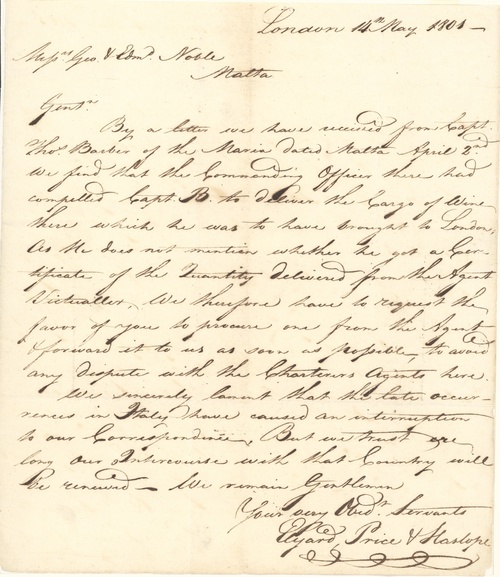 London 14th May 1801 —
Messrs Geo. & Edmd. Noble
Malta
Gentn.
By a letter we have received from Capt.
Thos. Barber of the Maria dated Malta April 2nd
We find that the Commanding Officer there had
compelled Capt B. to deliver the Cargo of Wine
there which he was to have brought to London,
As He does not mention whether he got a Cer-
tificate of the Quantity delivered from the Agent
Victualler, We therefore have to request the
favor of you to procure one from the Agent
& forward it to us as soon as possible, to avoid
any dispute with the Charterers Agents here.
We sincerely lament that the late occur-
rences in Italy have caused an interruption
to our Correspondence, But we trust ere
long our Intercourse with that Country will
be renewed — We remain Gentlemen
Your very Obedt. Servants
Price & Haslope